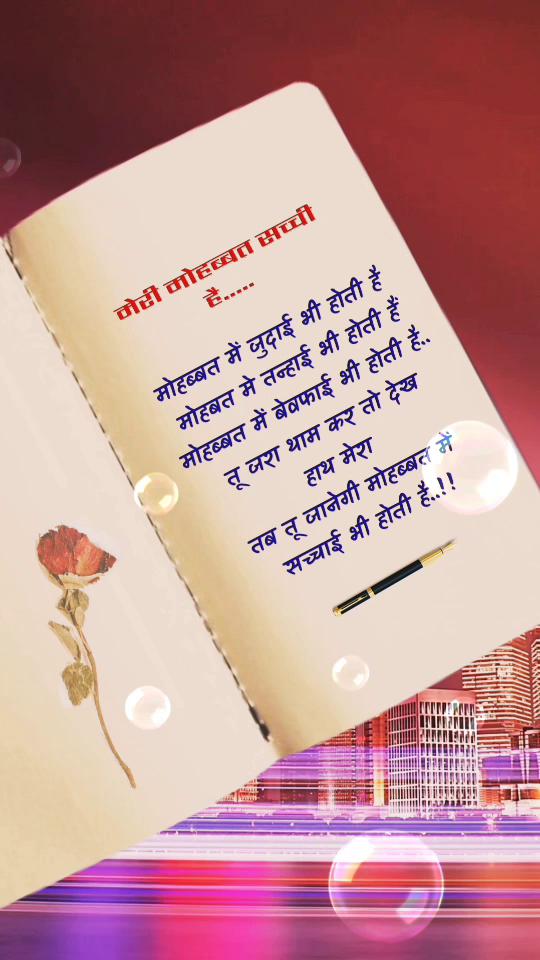 मेरी मोहब्बत सच्ची
है.....
मोहब्बत में जुदाई भी होती है
मोहबत मे तन्हाई भी होती हैं
मोहब्बत में बेवफाई भी होती है..
तू जरा थाम कर तो देख
हाथ मेरा
तब तू जानेगी मोहब्बत में
सच्चाई भी होती है..!!